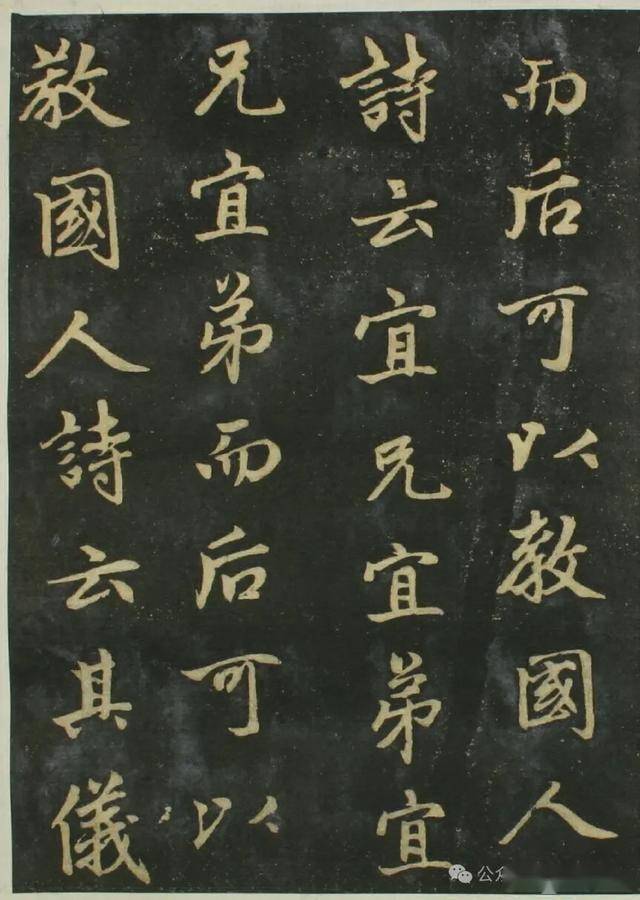 而后可以教國人
詩云宜兄宜弟宜
兄宜弟而后可以
教國人詩云其儀
公众